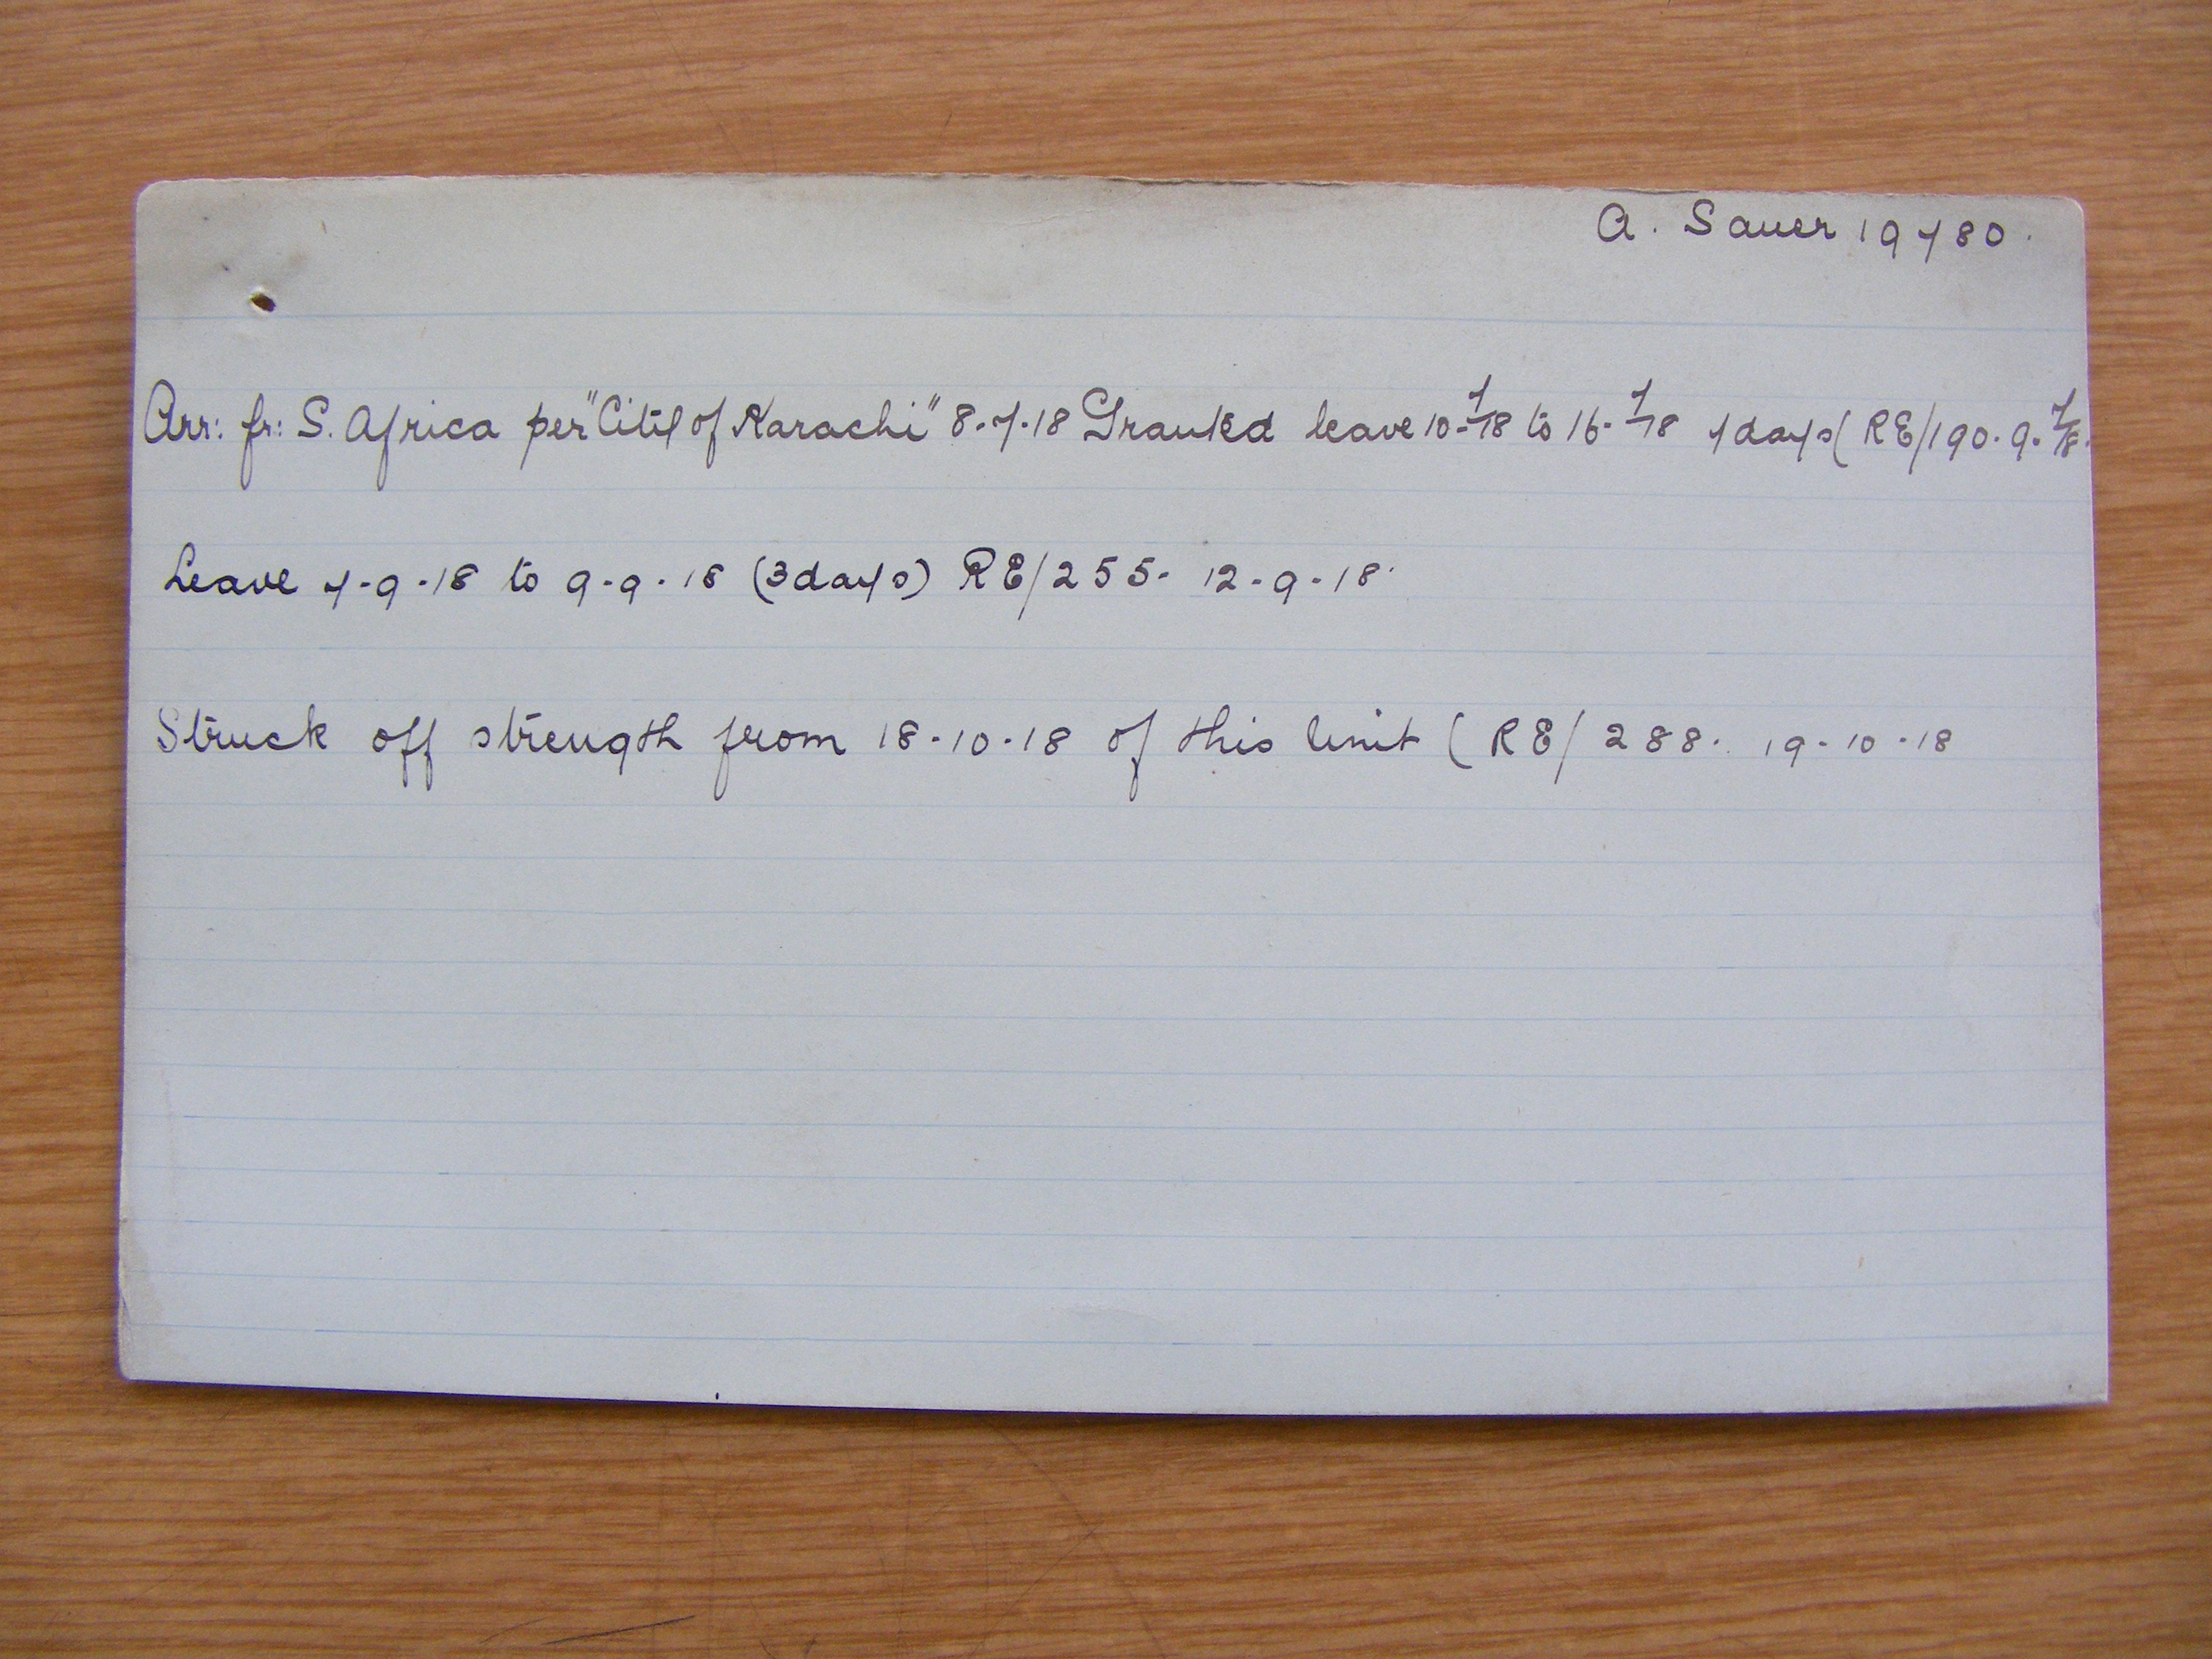 A. Sauer 19780.
Arr: fr: S. Africa per "City of Karachi" 8.7.18 Granted leave 10-7-18 to 16-7-18 7 days (RE/190. 9.7/18.
Leave 7-9-18 to 9-9-18 (3 days) RE/255. 12-9-18.
Struck off strength from 18-10-18 of this Unit (RE/288. 19-10-18